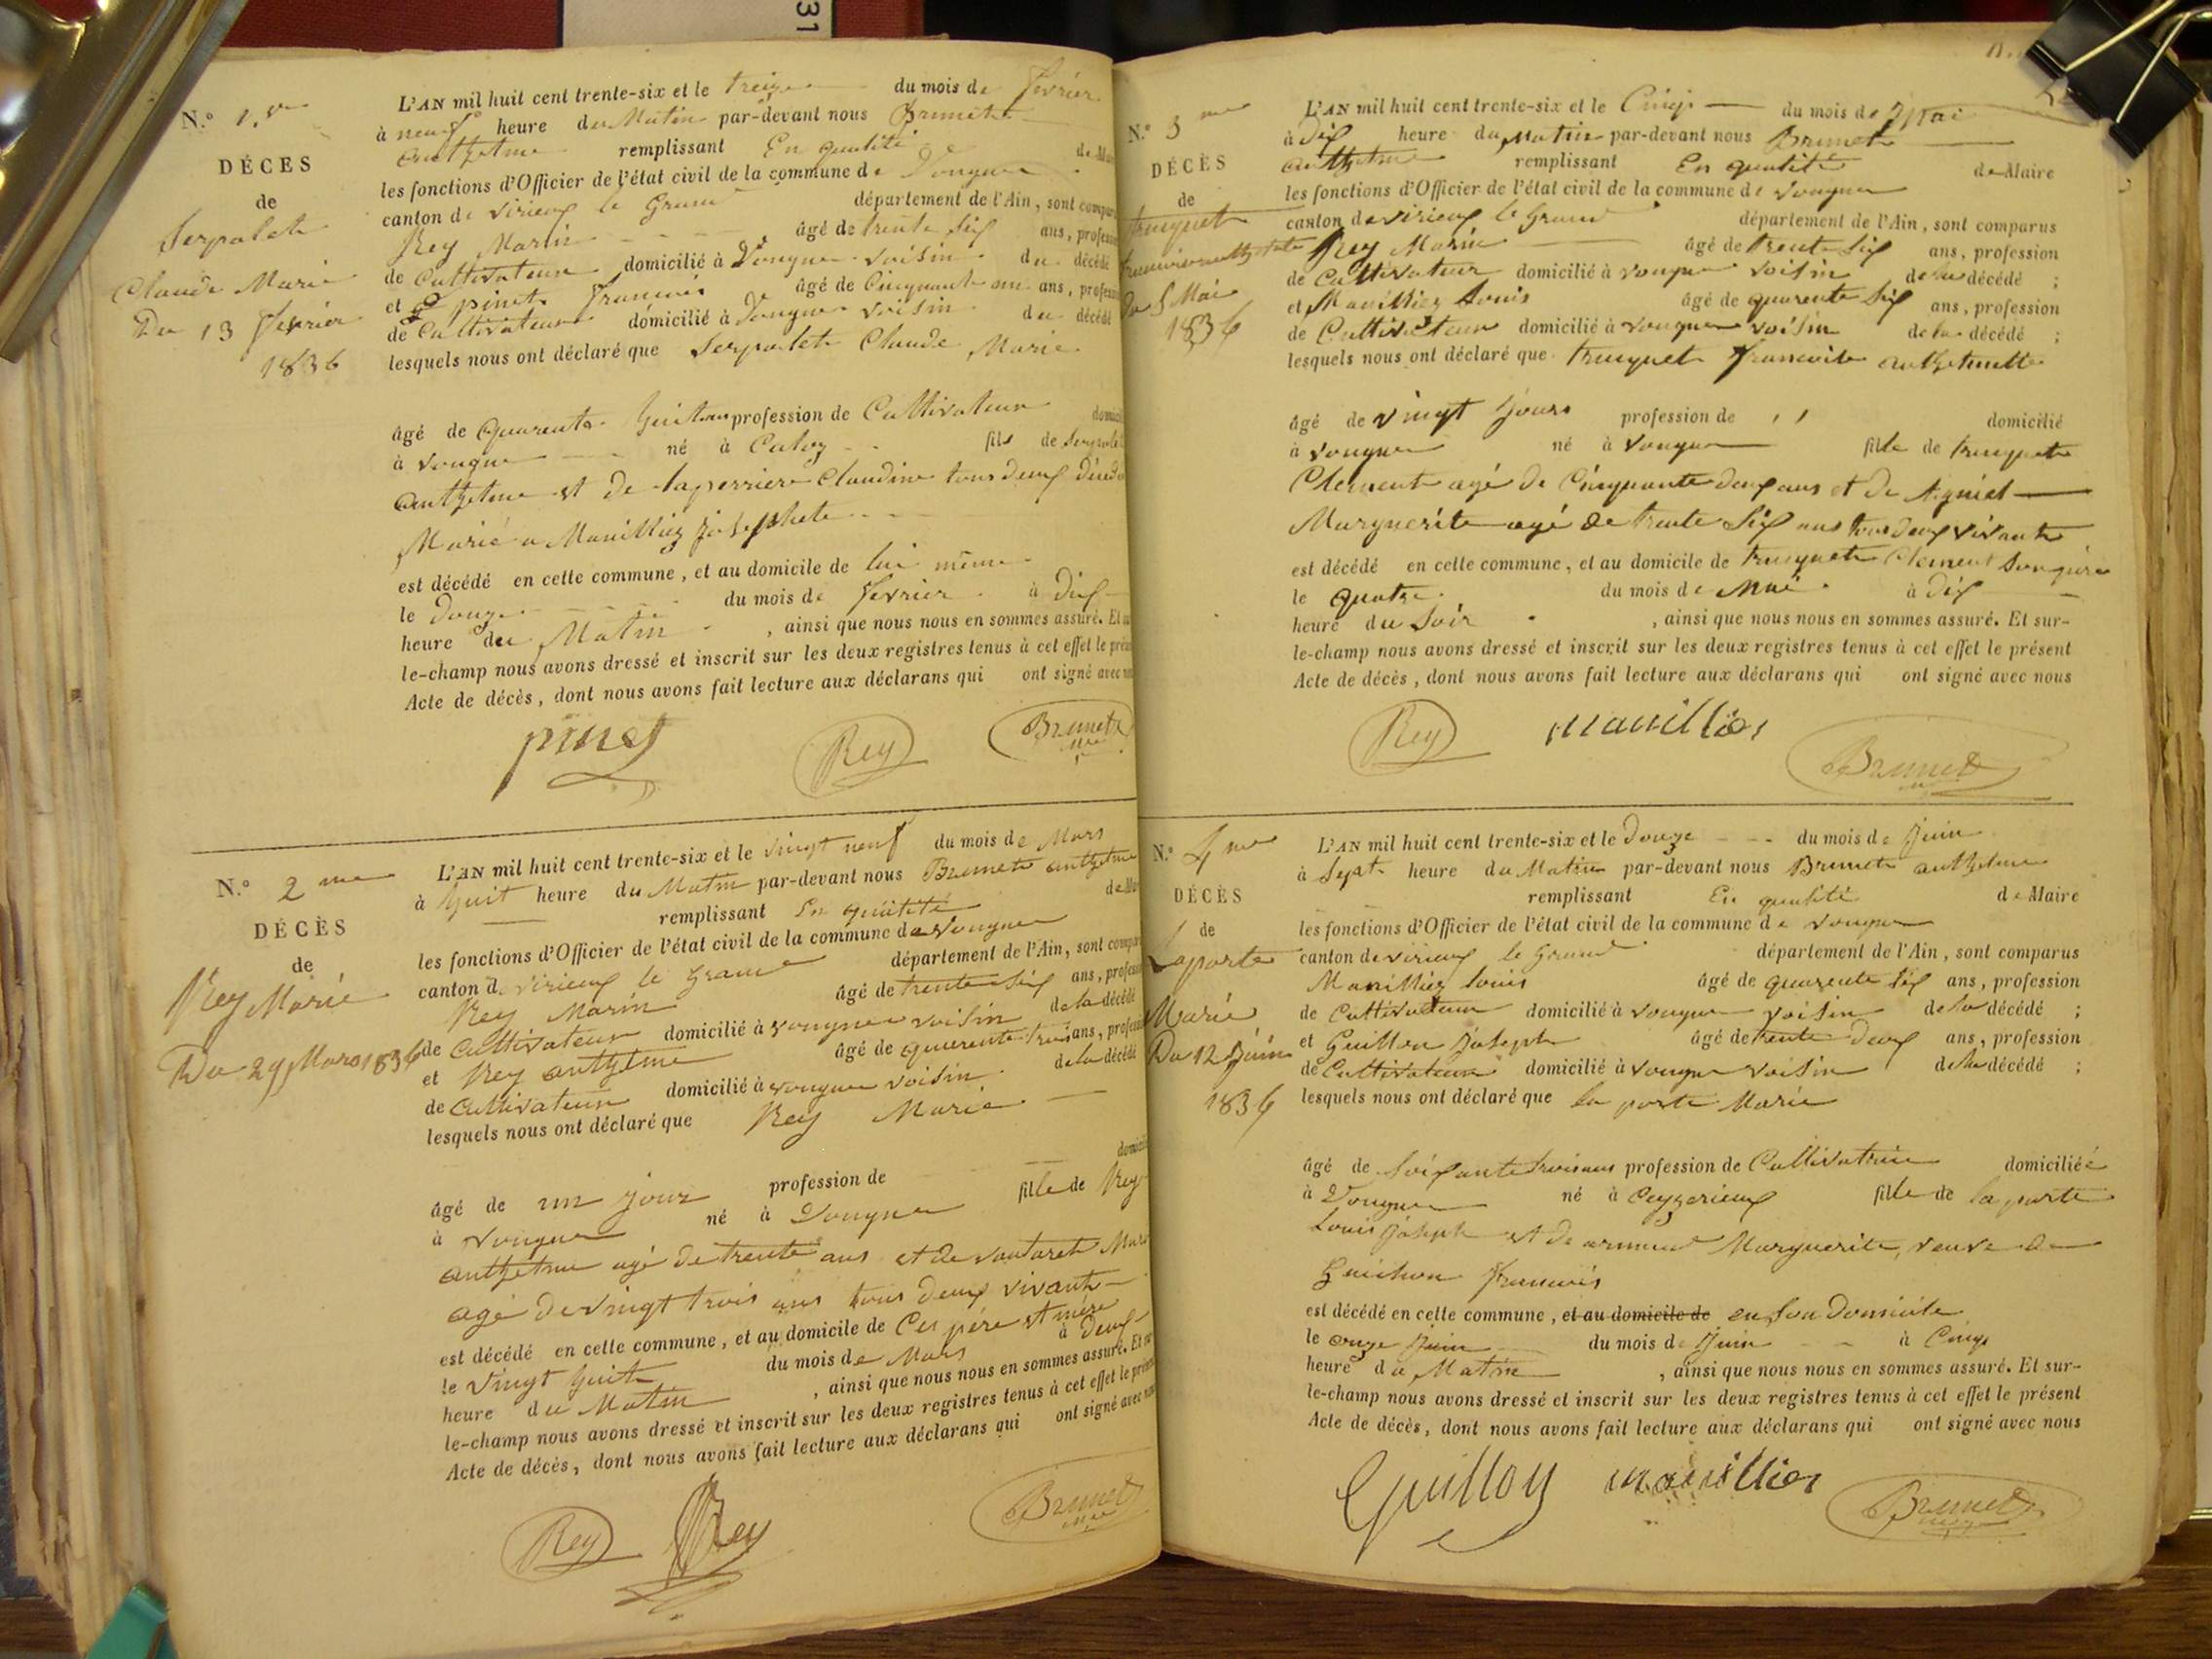 31
N.º 1.er
DÉCES
de
Serpolet
Claude Marie
Du 13 fevrier
1836
L'AN mil huit cent trente-six et le treize du mois de fevrier
à neuf heure du Matin par-devant nous Brunet
anthelme remplissant En qualité de Mai
les fonctions d'Officier de l'état civil de la commune de Vongne
canton de virieux le Grand département de l'Ain, sont compar
Rey Marin âgé de trente Six ans, profess
de Cultivateur domicilié à Vongne voisin du décédé
et pinet francois âgé de Cinquante ans, profess
de Cultivateur domicilié à Vongne voisin du décédé
lesquels nous ont déclaré que Serpolet Claude Marie
âgé de quarente huit ans profession de Cultivateur domici
à vongne né à Culoz fils de Serpolet
anthelme et de laperriere Claudine tous deux
Marié a Manillier josephete
est décédé en cette commune, et au domicile de lui même
le Douze du mois de fevrier à Dix
heure du Matin, ainsi que nous nous en sommes assuré. Et
le-champ nous avons dressé et inscrit sur les deux registres tenus à cet effet le prés
Acte de décès, dont nous avons fait lecture aux déclarans qui ont signé avec
pinet Rey Brunet
N.º 2 me
DÉCÈS
de
Rey Marie
Du 29 Mars 1836
L'AN mil huit cent trente-six et le vingt neuf du mois de Mars
à huit heure du Matin par-devant nous Brunet anthelme
remplissant En qualité de Mai
les fonctions d'Officier de l'état civil de la commune de Vongne
canton de virieux le Grand département de l'Ain, sont compar
Rey Marin âgé de trente Six ans, profess
de Cultivateur domicilié à vongne voisin de la décédé
et Rey anthelme âgé de quarente trois ans, profess
de Cultivateur domicilié à vongne voisin de la décédé
lesquels nous ont déclaré que Rey Marie
âgé de un jour profession de domicilié
à vongne né à Vongne fille de Rey
anthelme agé de trente ans et de
agé de vingt trois ans tous deux vivant
est décédé en cette commune, et au domicile de Ces père et mère
le vingt huit du mois de Mars à Deux
heure du Matin, ainsi que nous nous en sommes assuré. Et
le-champ nous avons dressé et inscrit sur les deux registres tenus à cet effet le présen
Acte de décès, dont nous avons fait lecture aux déclarans qui ont signé avec
Rey Rey Brunet
N.º 3 me
DÉCÈS
de
truquet
Du 5 Mai
1836
L'AN mil huit cent trente-six et le Cinq du mois de Mai
à Dix heure du Matin par-devant nous Brunet
anthelme remplissant En qualité de Maire
les fonctions d'Officier de l'état civil de la commune de vongne
canton de virieux le Grand département de l'Ain, sont comparus
Rey Marin âgé de trente Six ans, profession
de Cultivateur domicilié à vongne voisin de la décédé ;
et Manillier Louis âgé de quarente Six ans, profession
de Cultivateur domicilié à vongne voisin de la décédé ;
lesquels nous ont déclaré que truquet francoise anthelmette
âgé de vingt jours profession de , , domicilié
à vongne né à vongne fille de truquet
Clement agé de Cinquante deux ans et de
Marguerite agé de trente Six ans tous deux vivant
est décédé en cette commune, et au domicile de truquet Clement Son père
le quatre du mois de Mai à Dix
heure du Soir, ainsi que nous nous en sommes assuré. Et sur-
le-champ nous avons dressé et inscrit sur les deux registres tenus à cet effet le présent
Acte de décès, dont nous avons fait lecture aux déclarans qui ont signé avec nous
Rey manillier Brunet
N.º 4 me
DÉCÈS
de
Laporte
Marie
Du 12 Juin
1836
L'AN mil huit cent trente-six et le Douze du mois de Juin
à Sept heure du Matin par-devant nous Brunet anthelme
remplissant En qualité de Maire
les fonctions d'Officier de l'état civil de la commune de vongne
canton de virieux le Grand département de l'Ain, sont comparus
Manillier Louis âgé de quarente Six ans, profession
de Cultivateur domicilié à vongne voisin de la décédé ;
et Guillon Joseph âgé de trente Deux ans, profession
de Cultivateur domicilié à vongne voisin de la décédé ;
lesquels nous ont déclaré que la porte Marie
âgé de Soixante trois ans profession de Cultivatrice domiciliée
à Vongne né à Ceyzerieux fille de la porte
Louis Joseph et de Marguerite, veuve de
Guichon francois
est décédé en cette commune, et au domicile de en Son Domicile
le onze Juin du mois de Juin à Cinq
heure du Matin, ainsi que nous nous en sommes assuré. Et sur-
le-champ nous avons dressé et inscrit sur les deux registres tenus à cet effet le présent
Acte de décès, dont nous avons fait lecture aux déclarans qui ont signé avec nous
Guillon manillier Brunet